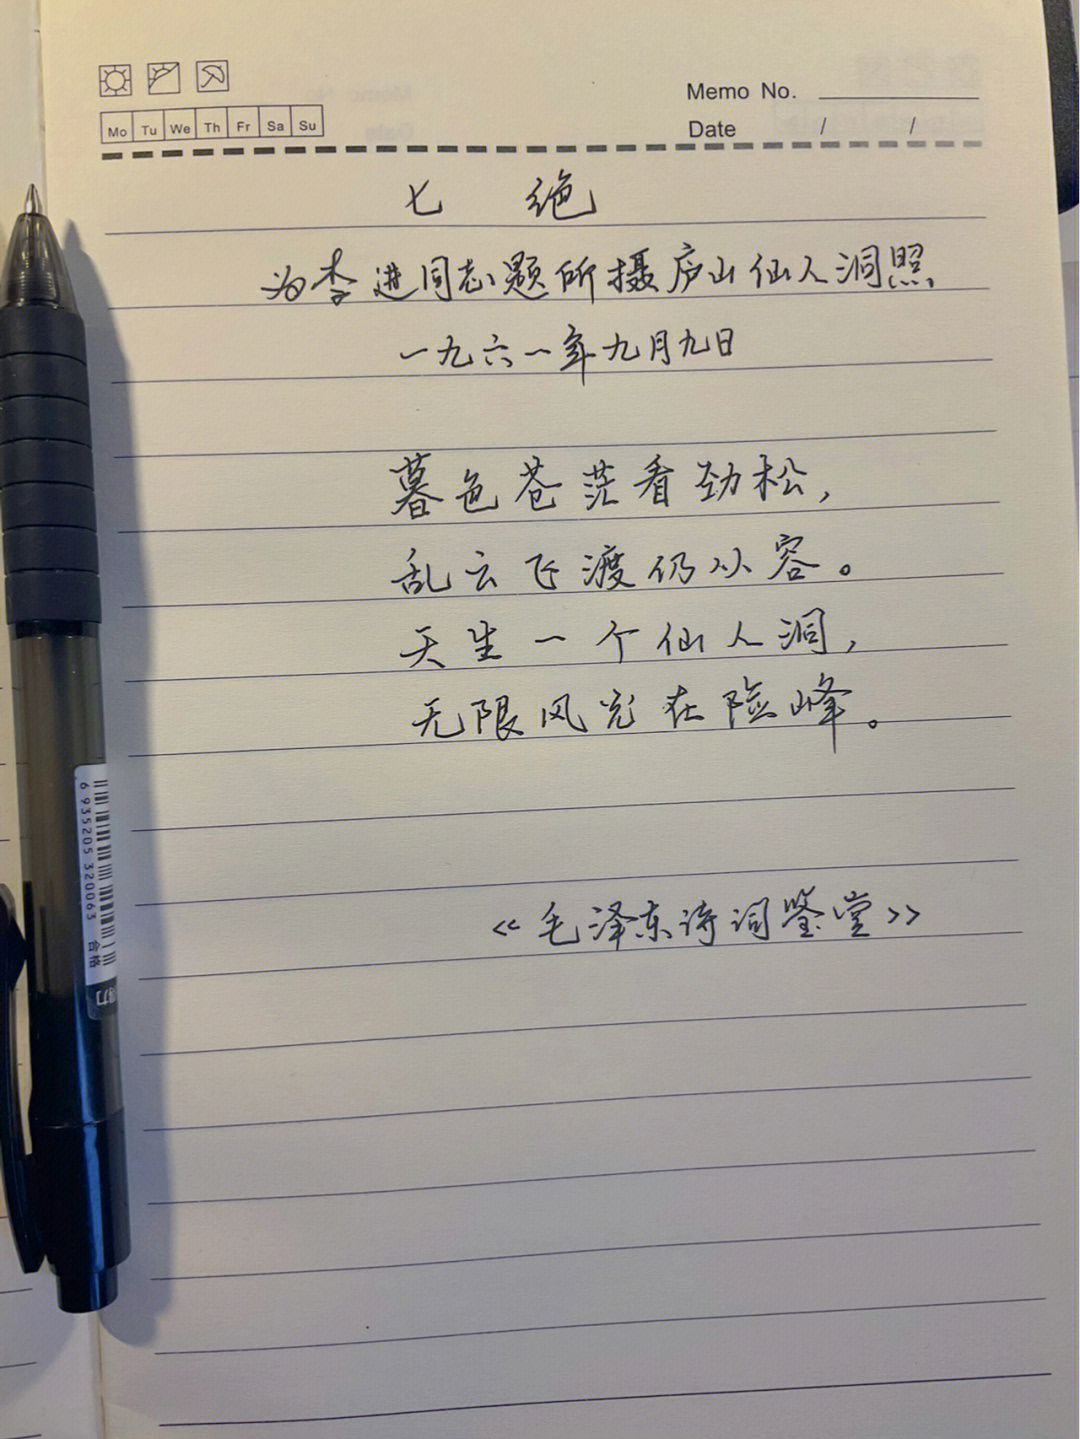 Memo No.
Mo Tu We Th Fr Sa Su
Date / /
七 绝
为李进同志题所摄庐山仙人洞照
一九六一年九月九日
暮色苍茫看劲松，
乱云飞渡仍从容。
天生一个仙人洞，
无限风光在险峰。
《毛泽东诗词鉴赏》
6 935205 320063 合格